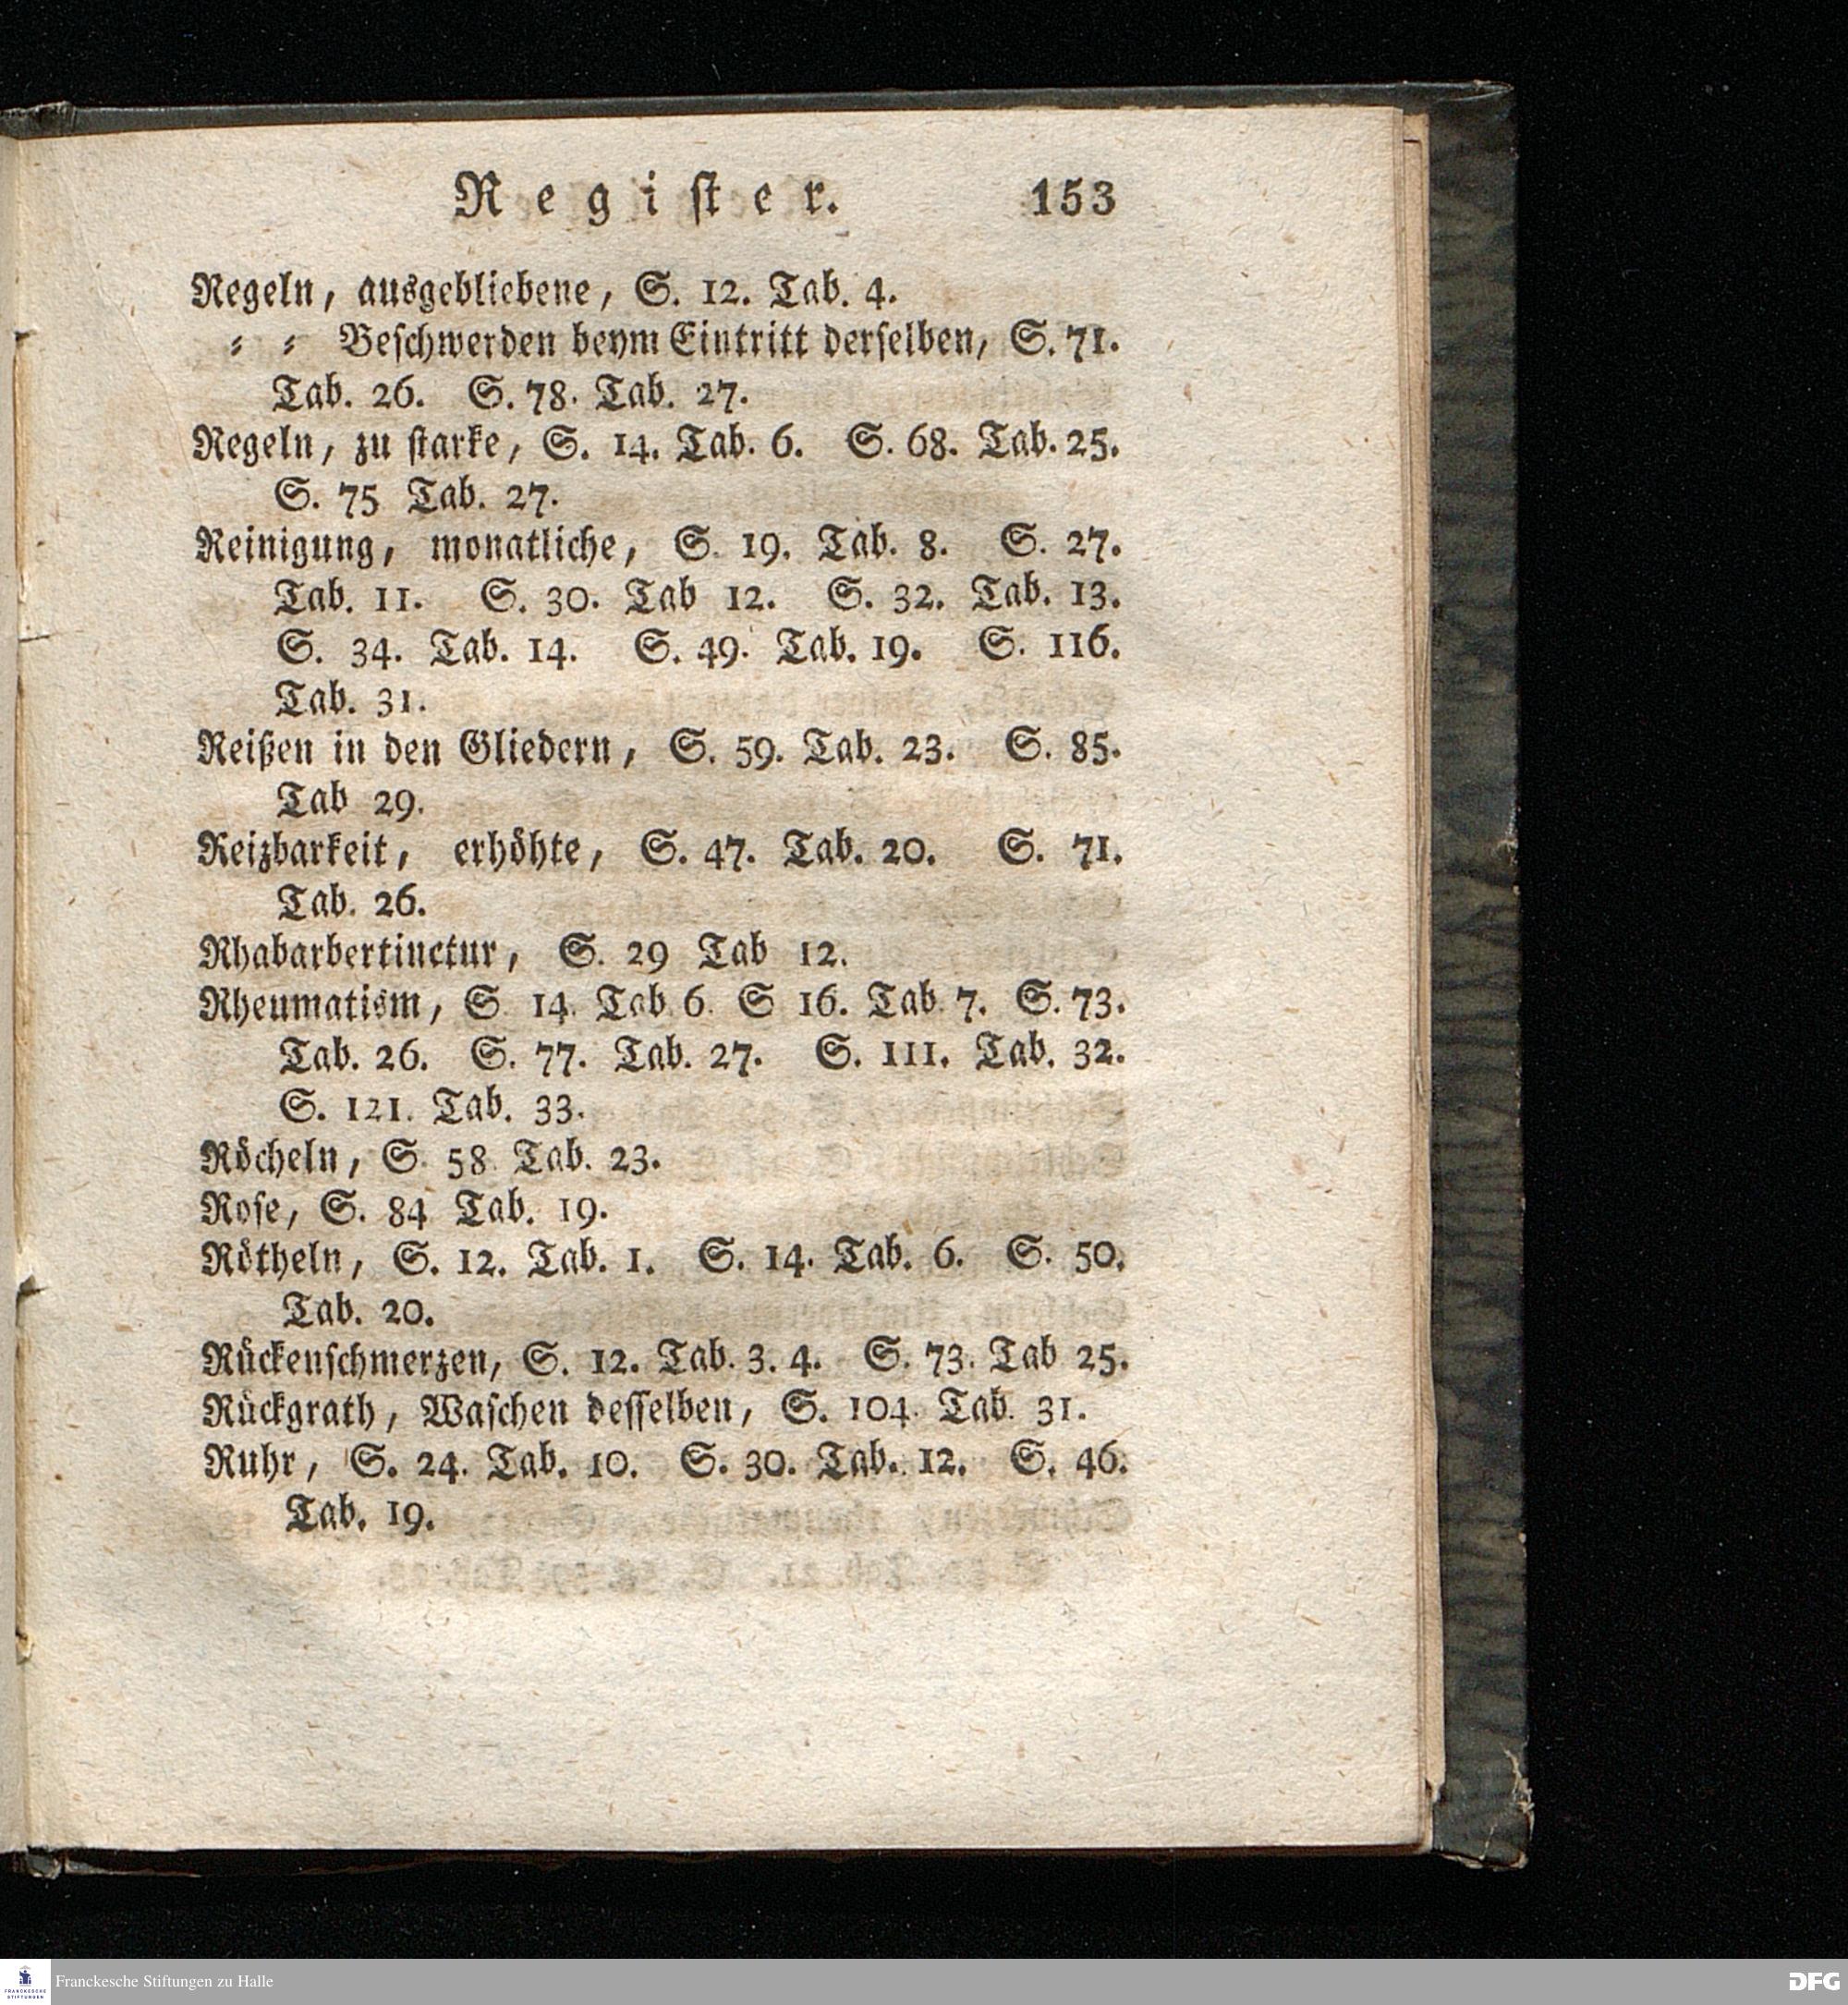 Regiſter. 153
Regeln, ausgebliebene, S. 12. Tab. 4.
⸗ ⸗ Beſchwerden beym Eintritt derſelben, S. 71.
Tab. 26. S. 78. Tab. 27.
Regeln, zu ſtarke, S. 14. Tab. 6. S. 68. Tab. 25.
S. 75 Tab. 27.
Reinigung, monatliche, S. 19. Tab. 8. S. 27.
Tab. 11. S. 30. Tab 12. S. 32. Tab. 13.
S. 34. Tab. 14. S. 49. Tab. 19. S. 116.
Tab. 31.
Reißen in den Gliedern, S. 59. Tab. 23. S. 85.
Tab 29.
Reizbarkeit, erhöhte, S. 47. Tab. 20. S. 71.
Tab. 26.
Rhabarbertinctur, S. 29 Tab 12.
Rheumatism, S. 14. Tab. 6. S 16. Tab. 7. S. 73.
Tab. 26. S. 77. Tab. 27. S. 111. Tab. 32.
S. 121. Tab. 33.
Röcheln, S. 58. Tab. 23.
Roſe, S. 84 Tab. 19.
Rötheln, S. 12. Tab. 1. S. 14. Tab. 6. S. 50.
Tab. 20.
Rückenſchmerzen, S. 12. Tab. 3. 4. S. 73. Tab 25.
Rückgrath, Waſchen deſſelben, S. 104. Tab. 31.
Ruhr, S. 24. Tab. 10. S. 30. Tab. 12. S. 46.
Tab. 19.
FRANCKESCHE
STIFTUNGEN
Franckesche Stiftungen zu Halle
DFG